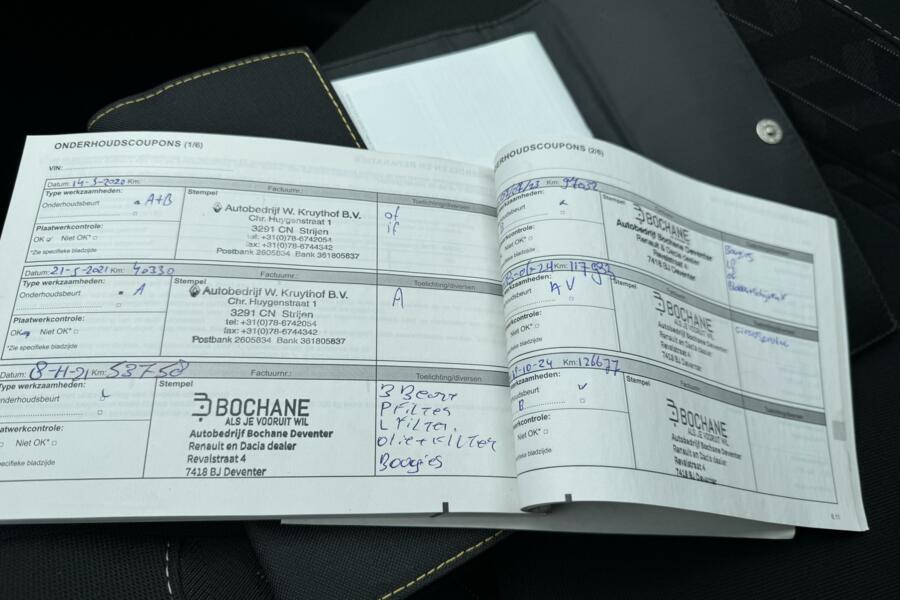 ONDERHOUDSCOUPONS (1/6)
VIN:
Datum: 14-5-2020 Km:
Type werkzaamheden:
Onderhoudsbeurt A+B
Plaatwerkcontrole:
OK Niet OK*
*Zie specifieke bladzijde
Stempel
Factuurnr.:
Autobedrijf W. Kruythof B.V.
Chr. Huygenstraat 1
3291 CN Strijen
tel: +31(0)78-6742054
fax: +31(0)78-6744342
Postbank 2605834 Bank 361805637
Toelichting/diversen
of
if
Datum: 21-5-2021 Km: 40330
Type werkzaamheden:
Onderhoudsbeurt A
Plaatwerkcontrole:
OK Niet OK*
*Zie specifieke bladzijde
Stempel
Factuurnr.:
Autobedrijf W. Kruythof B.V.
Chr. Huygenstraat 1
3291 CN Strijen
tel: +31(0)78-6742054
fax: +31(0)78-6744342
Postbank 2605834 Bank 361805637
Toelichting/diversen
A
Datum: 18-11-21 Km: 53758
Type werkzaamheden:
Onderhoudsbeurt
Plaatwerkcontrole:
Niet OK*
specifieke bladzijde
Stempel
Factuurnr.:
BOCHANE
ALS JE VOORUIT WIL
Autobedrijf Bochane Deventer
Renault en Dacia dealer
Revalstraat 4
7418 BJ Deventer
Toelichting/diversen
B Beurt
P Filter
L Filter.
Olie + Filter
Boogies
ERHOUDSCOUPONS (2/6)
/23 Km: 97032
werkzaamheden:
Niet OK*
bladzijde
Stempel
BOCHANE
Autobedrijf Bochane Deventer
Renault & Dacia dealer
7418 BJ Deventer
Bougies
-06-24 Km: 117933
werkzaamheden:
oudsbeurt A V
Niet OK*
bladzijde
Stempel
BOCHANE
ALS JE VOORUIT WIL
Autobedrijf Bochane Deventer
Renault en Dacia dealer
Revalstraat 4
7418 BJ Deventer
-10-24 Km: 126677
werkzaamheden:
dsbeurt
B
erkcontrole:
Niet OK*
bladzijde
Stempel
BOCHANE
ALS JE VOORUIT WIL
Autobedrijf Bochane Deventer
Renault en Dacia dealer
Revalstraat 4
7418 BJ Deventer
6.11